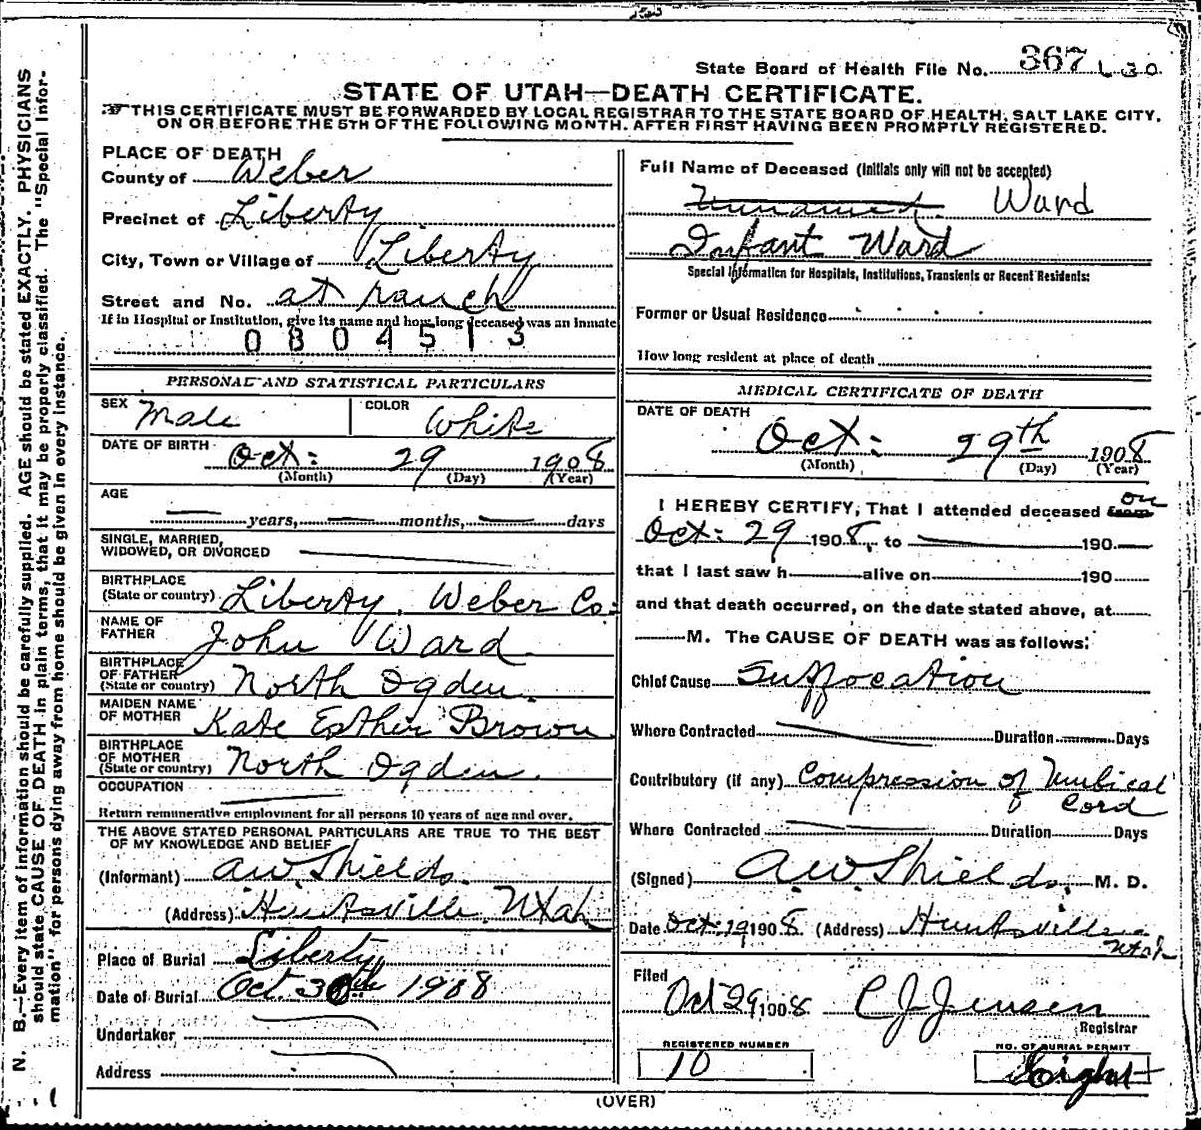 State Board of Health File No. 367 L 30
STATE OF UTAH—DEATH CERTIFICATE.
THIS CERTIFICATE MUST BE FORWARDED BY LOCAL REGISTRAR TO THE STATE BOARD OF HEALTH, SALT LAKE CITY,
ON OR BEFORE THE 5TH OF THE FOLLOWING MONTH. AFTER FIRST HAVING BEEN PROMPTLY REGISTERED.
N. B.—Every item of information should be carefully supplied. AGE should be stated EXACTLY. PHYSICIANS
should state CAUSE OF DEATH in plain terms, that it may be properly classified. The "Special Infor-
mation" for persons dying away from home should be given in every instance.
PLACE OF DEATH
County of Weber
Precinct of Liberty
City, Town or Village of Liberty
Street and No. at ranch
If in Hospital or Institution, give its name and how long deceased was an inmate
0804513
PERSONAL AND STATISTICAL PARTICULARS
SEX Male COLOR White
DATE OF BIRTH Oct: 29 1908
(Month) (Day) (Year)
AGE
years, months, days
SINGLE, MARRIED,
WIDOWED, OR DIVORCED
BIRTHPLACE
(State or country) Liberty, Weber Co:
NAME OF
FATHER John Ward
BIRTHPLACE
OF FATHER
(State or country) North Ogden.
MAIDEN NAME
OF MOTHER Kate Esther Brown
BIRTHPLACE
OF MOTHER
(State or country) North Ogden.
OCCUPATION
Return remunerative employment for all persons 10 years of age and over.
THE ABOVE STATED PERSONAL PARTICULARS ARE TRUE TO THE BEST
OF MY KNOWLEDGE AND BELIEF
(Informant) A.W. Shields.
(Address) Huntsville, Utah
Place of Burial Liberty
Date of Burial Oct. 30th 1908
Undertaker
Address
Full Name of Deceased (Initials only will not be accepted)
Unnamed. Ward
Infant Ward
Special Information for Hospitals, Institutions, Transients or Recent Residents:
Former or Usual Residence
How long resident at place of death
MEDICAL CERTIFICATE OF DEATH
DATE OF DEATH
Oct: 29th 1908
(Month) (Day) (Year)
I HEREBY CERTIFY, That I attended deceased from on
Oct: 29 1908, to 190
that I last saw h alive on 190
and that death occurred, on the date stated above, at
M. The CAUSE OF DEATH was as follows:
Chief Cause Suffocation
Where Contracted Duration Days
Contributory (if any) Compression of Umbical
Cord
Where Contracted Duration Days
(Signed) A.W. Shields, M. D.
Date Oct. 29 1908 (Address) Huntsville
Utah
Filed
Oct 29 1908 C J Jensen
Registrar
REGISTERED NUMBER
10
NO. OF BURIAL PERMIT
Eight
(OVER)